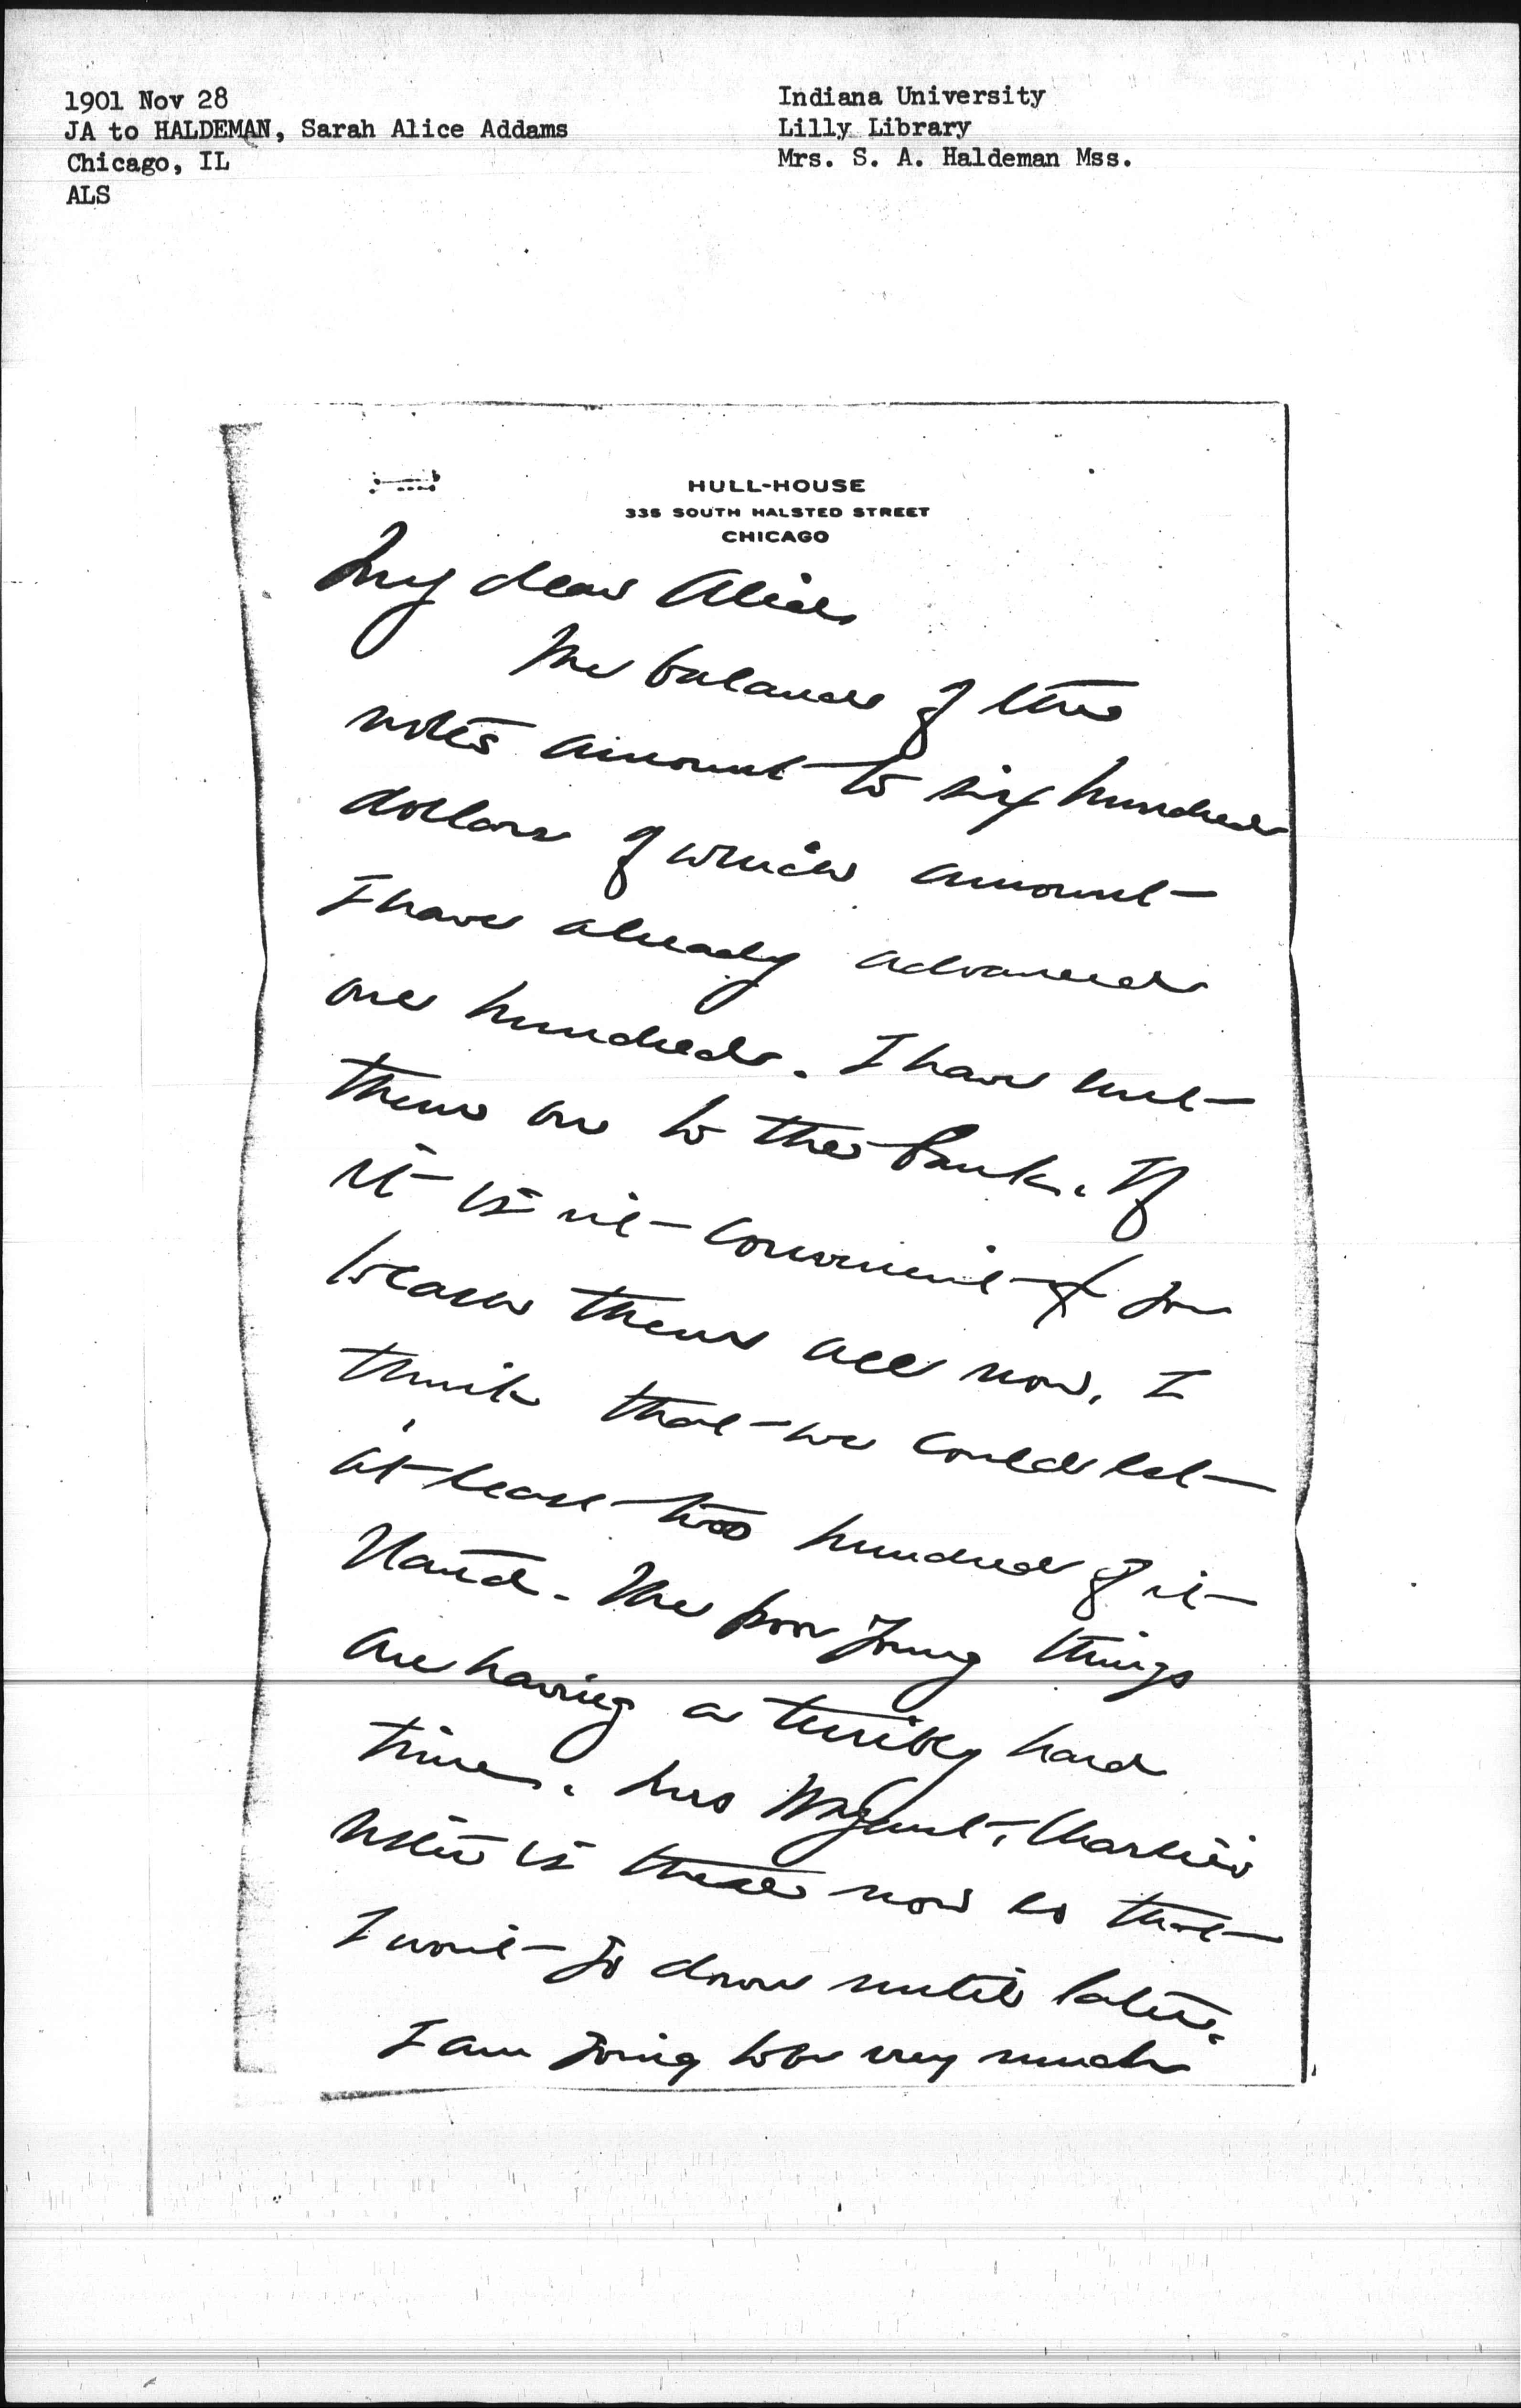 1901 Nov 28
JA to HALDEMAN, Sarah Alice Addams
Chicago, IL
ALS
Indiana University
Lilly Library
Mrs. S. A. Haldeman Mss.
HULL-HOUSE
335 SOUTH HALSTED STREET
CHICAGO
My dear Alice
The balance of the
notes amount to six hundred
dollars of which amount
I have already advanced
one hundred. I have sent
them on to the bank. If
it is convenient for you
to cash them all now, I
think that we could let
at least two hundred of it
stand. The poor young things
are having a terribly hard
time. Mrs Wyant, Charlie's
sister is there now so that
I won't go down until later.
I am going to be very much